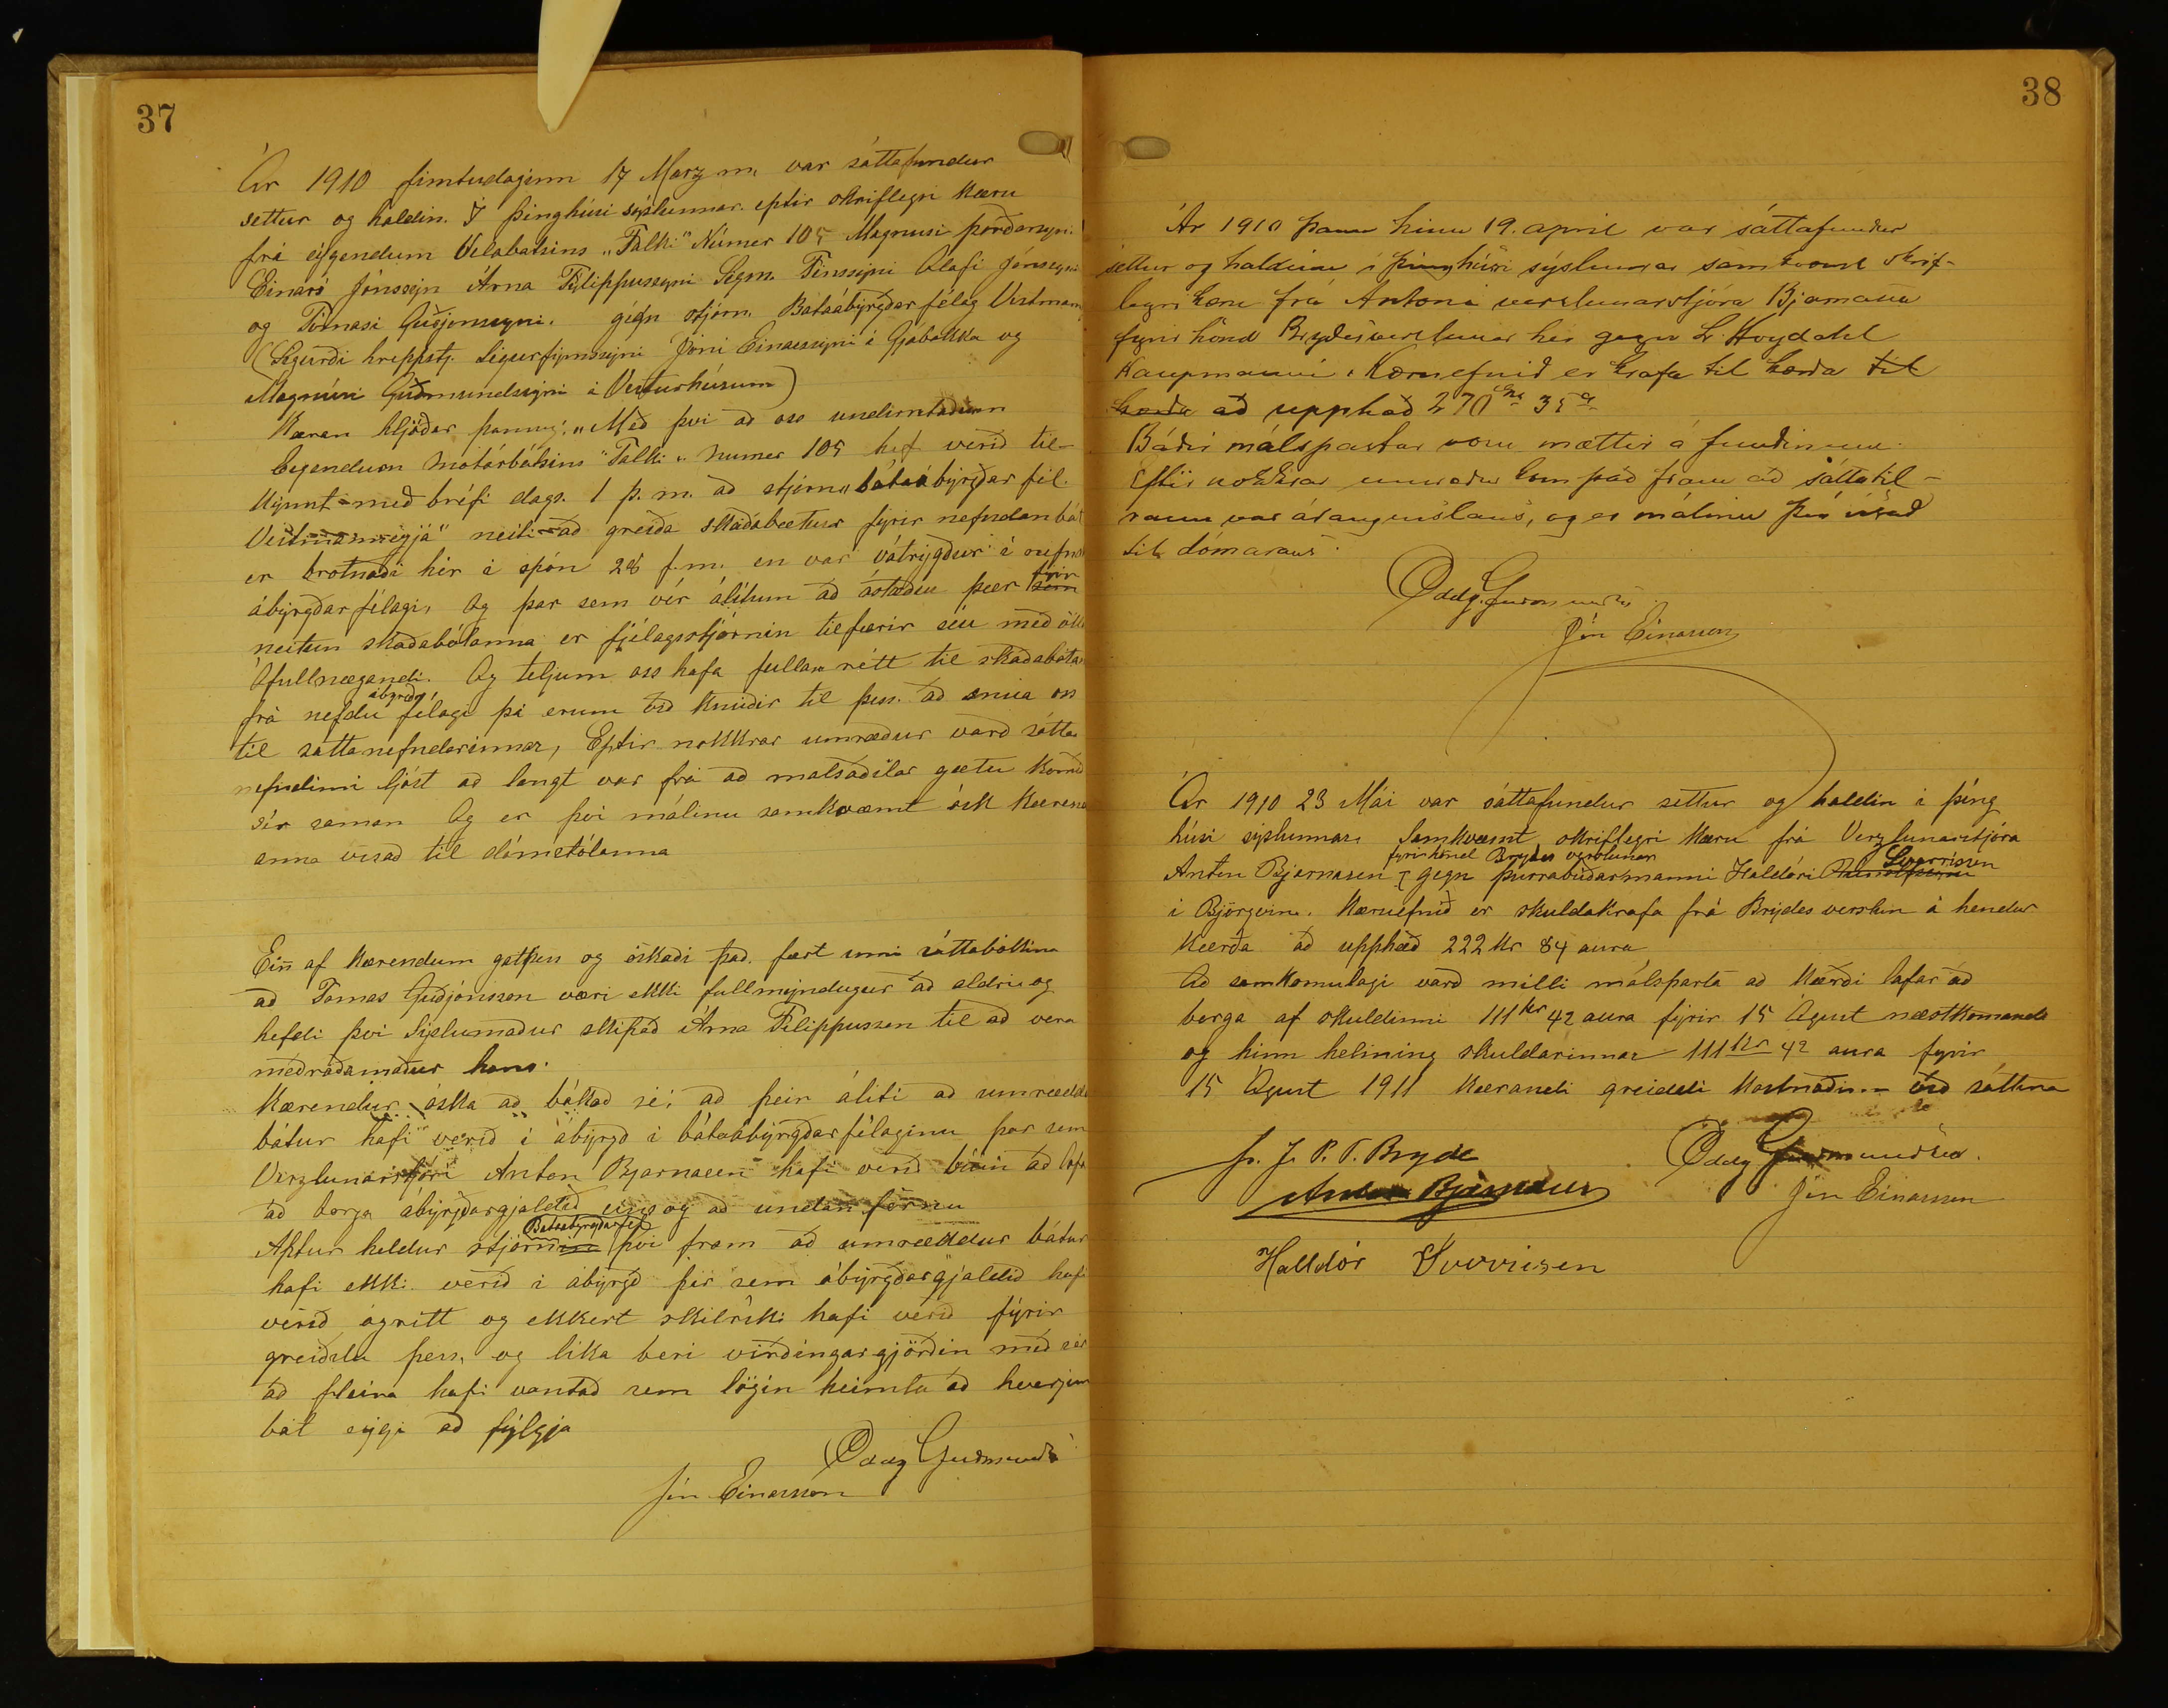 37
Ár 1910 fimtudaginn 17 Marz m. var sáttafundur
settur og haldin. Í þinghúsi sýslunnar. eptir skriflegri Kæru
frá eýgendum Velabatsins „Falki" Númer 105 Magnusi þorðarsyni
Einari Jónssýn Árna Filippussyni Sigm. Finssýni Ólafi Jónssyni
og Tómasi Guðjonssyni. gégn stjórn. Bátaábýrgðar félag Vestman
(Sigurði hreppstj. Sigurfinnssýni Jóni Einarssyni í Gjábakka og
Magnúsi Guðmundssýni í Vesturhúsum)
Kæran hljóðar þannig: „Með þvi að oss undirrituðum
Eigendum motórbátsins "Falki" Numer 105 hef verið til-
kýnnt með bréfi dags. 1 þ. m. að stjórn „bátaábýrgðar fél.
Vestmannéyjá" neiti að greiða skaðabætur fyrir nefndan bát
er brotnaði hér í spón 28 f.m. en var vátrýgður í ofnf
ábýrgðarfélagi, Og þar sem vér álitum að ástæður þær fyrir
neitun skaðabótanna er fjélagsstjórnin tilfærir séu með öllu
Ófullnægandi. Og teljum oss hafa fullan rétt til skaðabóta
frá nefdu ábyrgðar félagi þá erum við knúðir til þess. að snúa oss
til sáttanefndarinnar, Eptir nokkrar umræður varð sátta
nefndinni ljóst að langt var frá að malsaðilar gætu komið
sér saman Og er þvi málinu samkvæmt ósk kærend
anna visað til dómstólanna
Ein af Kærendum gat þess og óskaði það fært inni sáttabókina
að Tomas Guðjónsson væri ekki fullmyndugur að aldri og
hefdi þvi Sýslumaður skipað Árna Filippusson til að vera
meðráðamaður hans.
Kærendur óska að bókað sé, að þeir áliti að umræddi
bátur hafi verið í ábýrgð i bátaábýrgðarfélaginu þar sem
Verzlunarstjóri Anton Bjarnasen hafi verið búin að lofa
að borga ábýrgðargjaldið eins og að undan förnu
Aptur heldur stjórn Bataabyrgðarfél því fram að umræddur bátur
hafi ekki verið i ábýrgð þar sem ábýrgðargjaldið hafi
verið ógritt og ekkert skilríki hafi verið fyrir
greiðslu þess, og lika beri virðingargjörðin með sér
að fleira hafi vantað sem lögin heimta að hverjum
bát eýgi að fýlgja
Oddg Guðmunds
Jón Einarsson
38
Ár 1910 þann hinn 19. april var sáttafundur
settur og haldinn i þinghúsi sýslunnar samkvæmt skrif-
legri kæru frá Antoni verslunarstjóra Bjarnasen
fyrir hönd Brydesverslunar hér gegn L. Høydahl
Kaupmanni. Kæruefnið er krafa til kærða til
kærða að upphæð 270 kr 35 a
Báðir málspartar voru mættir á fundinum.
Eftir nokkrar umræður kom það fram að sáttatil-
raun var árangurslaus, og er málinu því visað
til dómarans.
Oddg. Guðmundss
Jón Einarsson
Ár 1910 23 Mái var sáttafundur settur og haldin i þing
húsi sýslunnar. Samkvæmt skriflegri Kæru frá Verzlunarstjóra
Anton Bjarnasen fyrir hönd Brydes verslunar gegn þurrabúðarmanni Haldóri Sverrissen
i Björgvin. Kæruefnið er skuldakrafa frá Brýdes verslun á hendur
Kærða að upphæð 222 kr 84 aura
Að samkomulagi varð milli málsparta að Kærði lofar að
borga af skuldinni 111 kr 42 aura fyrir 15 Águst næstkomandi
og hinn helming skuldarinnar 111 kr 42 aura fyrir
15 Águst 1911 Kærandi greiddi Kostnaðinn við sáttina
Fr. J. P. T. Bryde
Anton Bjarnasen
Oddg Guðmundsen.
Jón Einarsson
Halldór Sverrisen